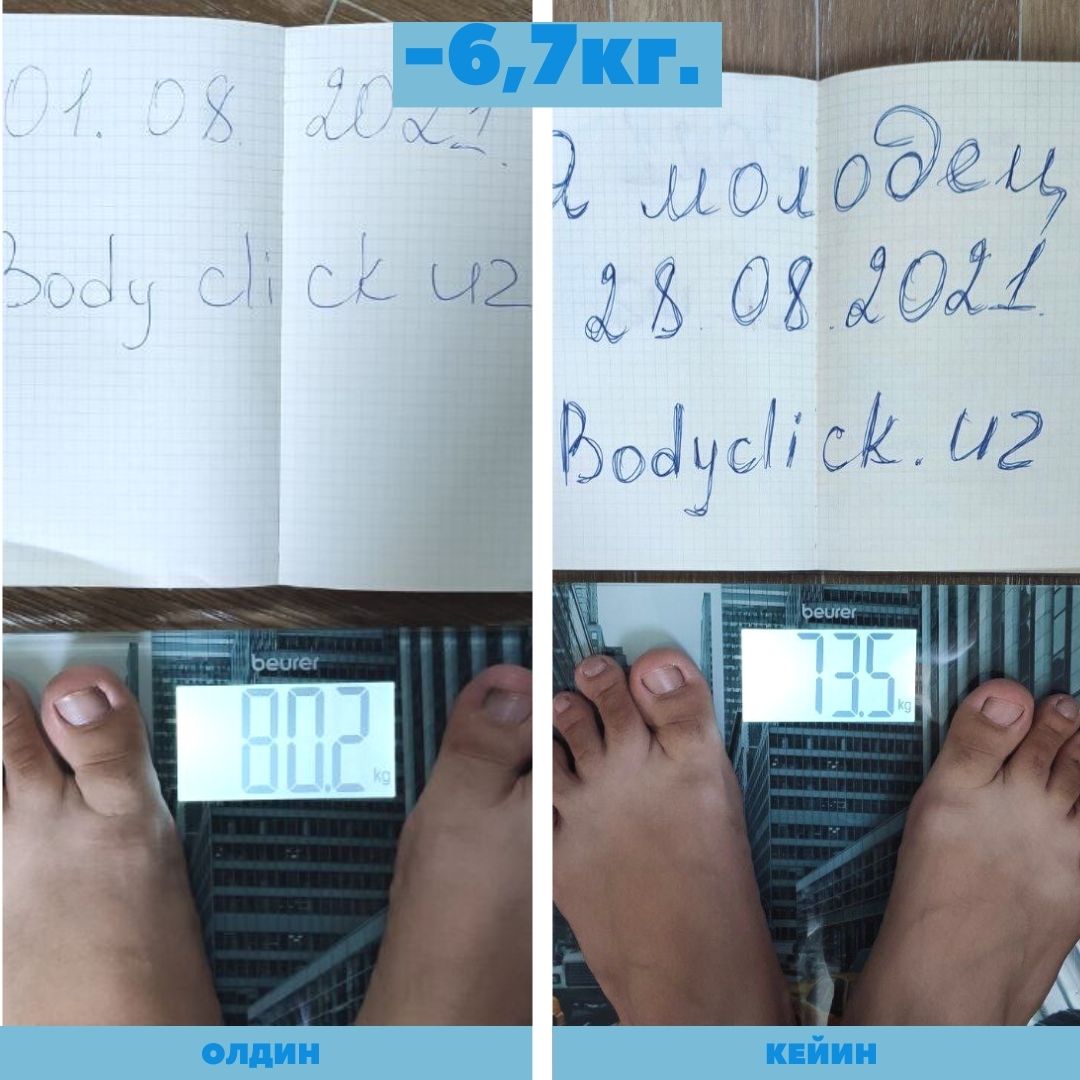 -6,7кг.
01. 08. 2021.
Body click uz
beurer
80.2 kg
ОЛДИН
Я молодец
28.08.2021.
Bodyclick.uz
beurer
73.5 kg
КЕЙИН